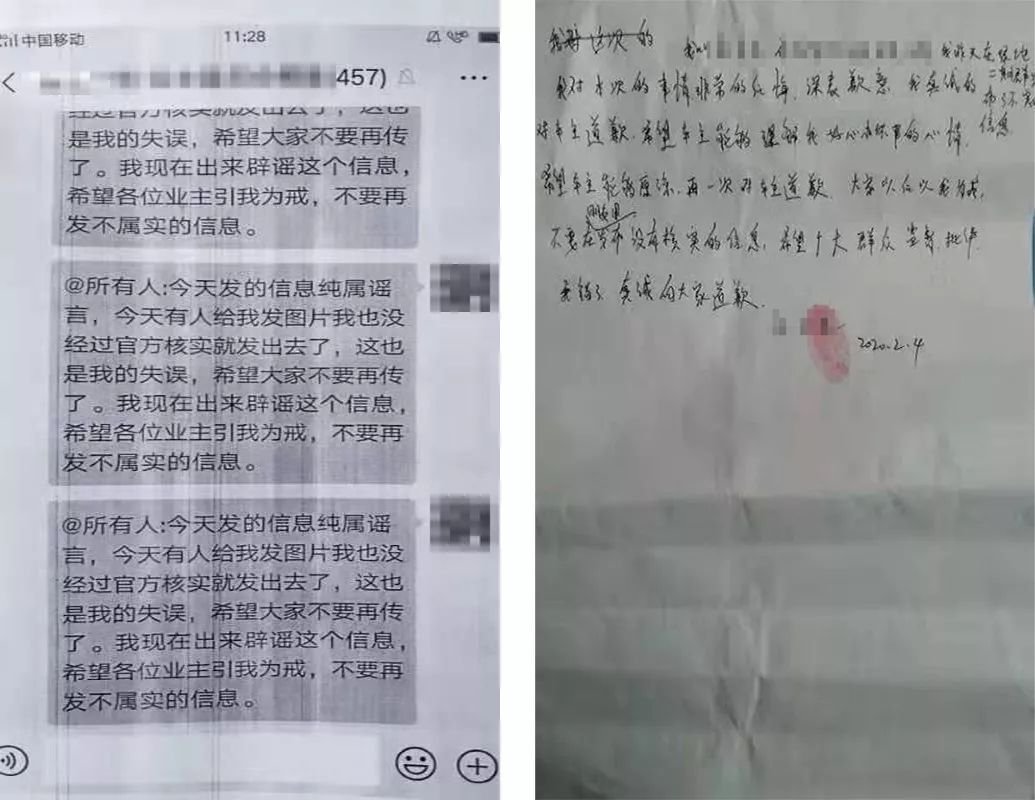 中国移动 11:28
457)
经过官方核实就发出去了，这也
是我的失误，希望大家不要再传
了。我现在出来辟谣这个信息，
希望各位业主引我为戒，不要再
发不属实的信息。
@所有人:今天发的信息纯属谣
言，今天有人给我发图片我也没
经过官方核实就发出去了，这也
是我的失误，希望大家不要再传
了。我现在出来辟谣这个信息，
希望各位业主引我为戒，不要再
发不属实的信息。
@所有人:今天发的信息纯属谣
言，今天有人给我发图片我也没
经过官方核实就发出去了，这也
是我的失误，希望大家不要再传
了。我现在出来辟谣这个信息，
希望各位业主引我为戒，不要再
发不属实的信息。
我对这次的
我叫 我昨天在绿地
信息
我对本次的事情非常的后悔，深表歉意，我真诚的
对车主道歉.希望车主能够理解我好心办坏事的心情，
希望车主能够原谅.再一次对车主道歉.大家以后以我为戒，
朋友圈
不要在发布没有核实的信息，希望广大群众监督.批评.
我错了真诚向大家道歉.
2020.2.4